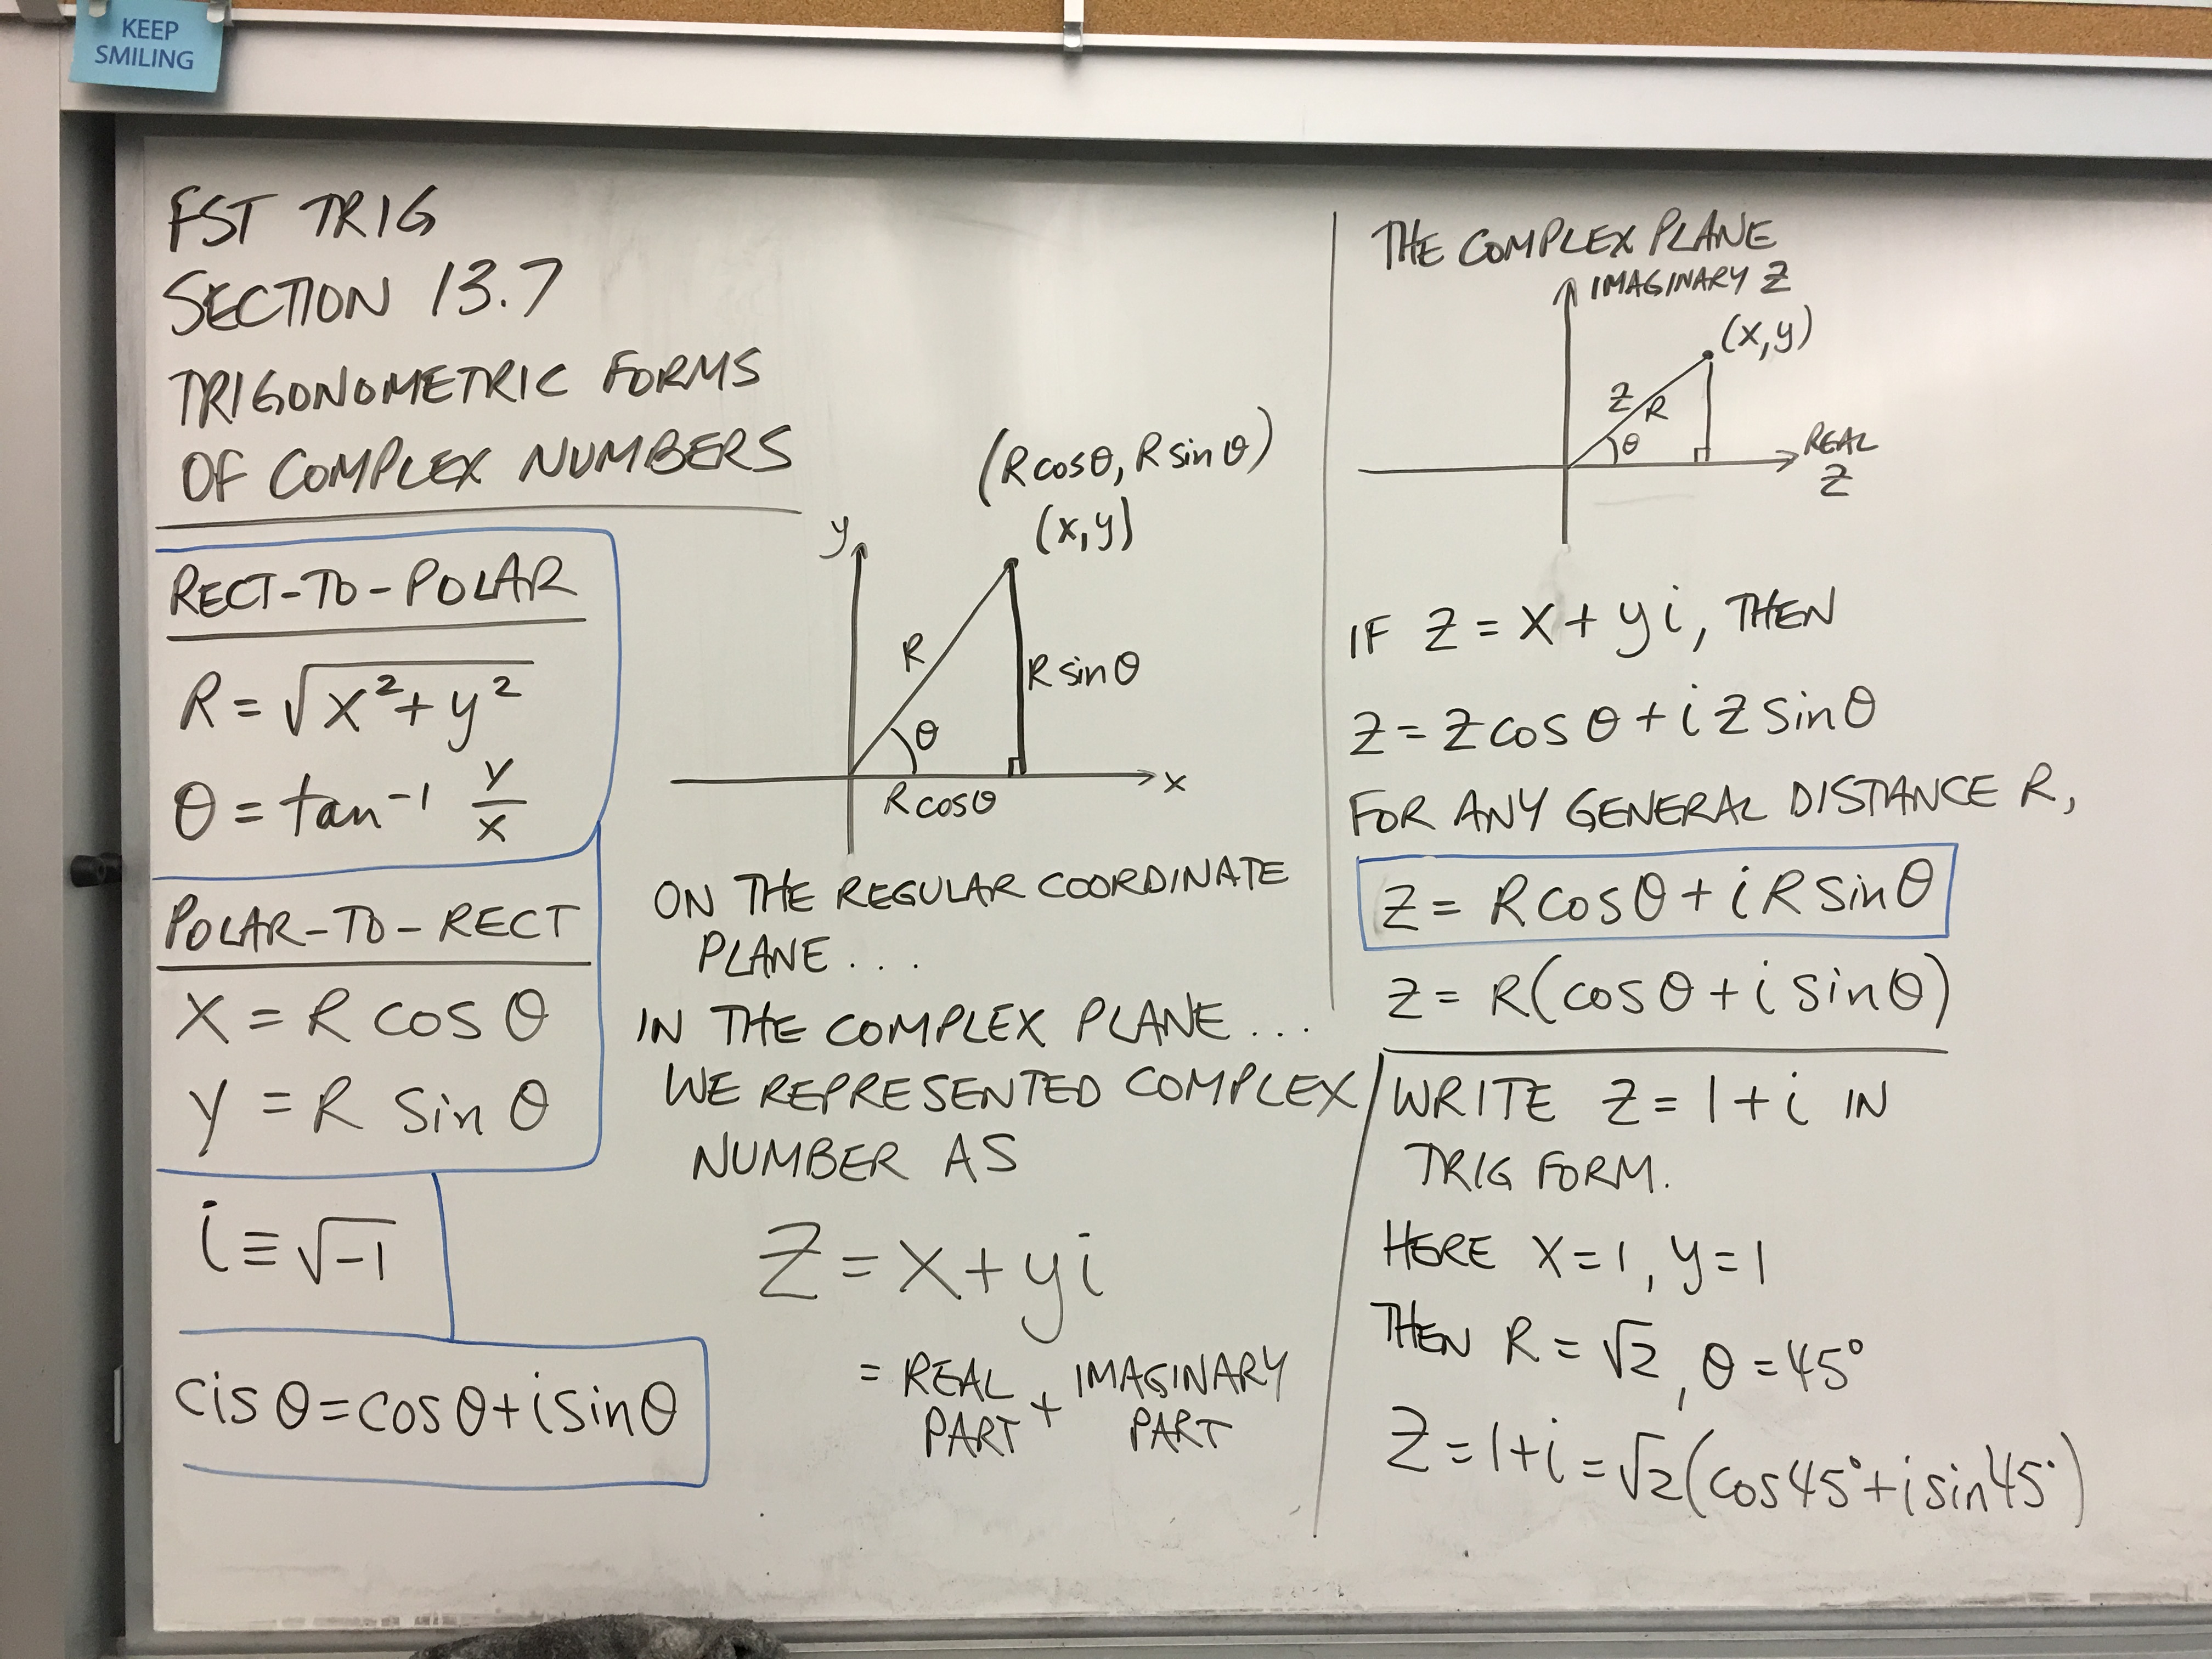 KEEP
SMILING
FST TRIG
SECTION 13.7
TRIGONOMETRIC FORMS
OF COMPLEX NUMBERS
RECT-TO-POLAR
R = √x²+y²
θ = tan⁻¹ y/x
POLAR-TO-RECT
X = R cos θ
y = R sin θ
i ≡ √-1
cis θ = cos θ + i sin θ
(R cos θ, R sin θ)
(x, y)
y
R
R sin θ
θ
x
R cos θ
ON THE REGULAR COORDINATE
PLANE...
IN THE COMPLEX PLANE...
WE REPRESENTED COMPLEX
NUMBER AS
Z = x + yi
= REAL PART + IMAGINARY PART
THE COMPLEX PLANE
IMAGINARY Z
(x, y)
Z
R
θ
REAL
Z
IF Z = X + yi, THEN
Z = Z cos θ + i Z sin θ
FOR ANY GENERAL DISTANCE R,
Z = R cos θ + i R sin θ
Z = R(cos θ + i sin θ)
WRITE Z = 1 + i IN
TRIG FORM.
HERE X = 1, y = 1
THEN R = √2, θ = 45°
Z = 1 + i = √2(cos 45° + i sin 45°)